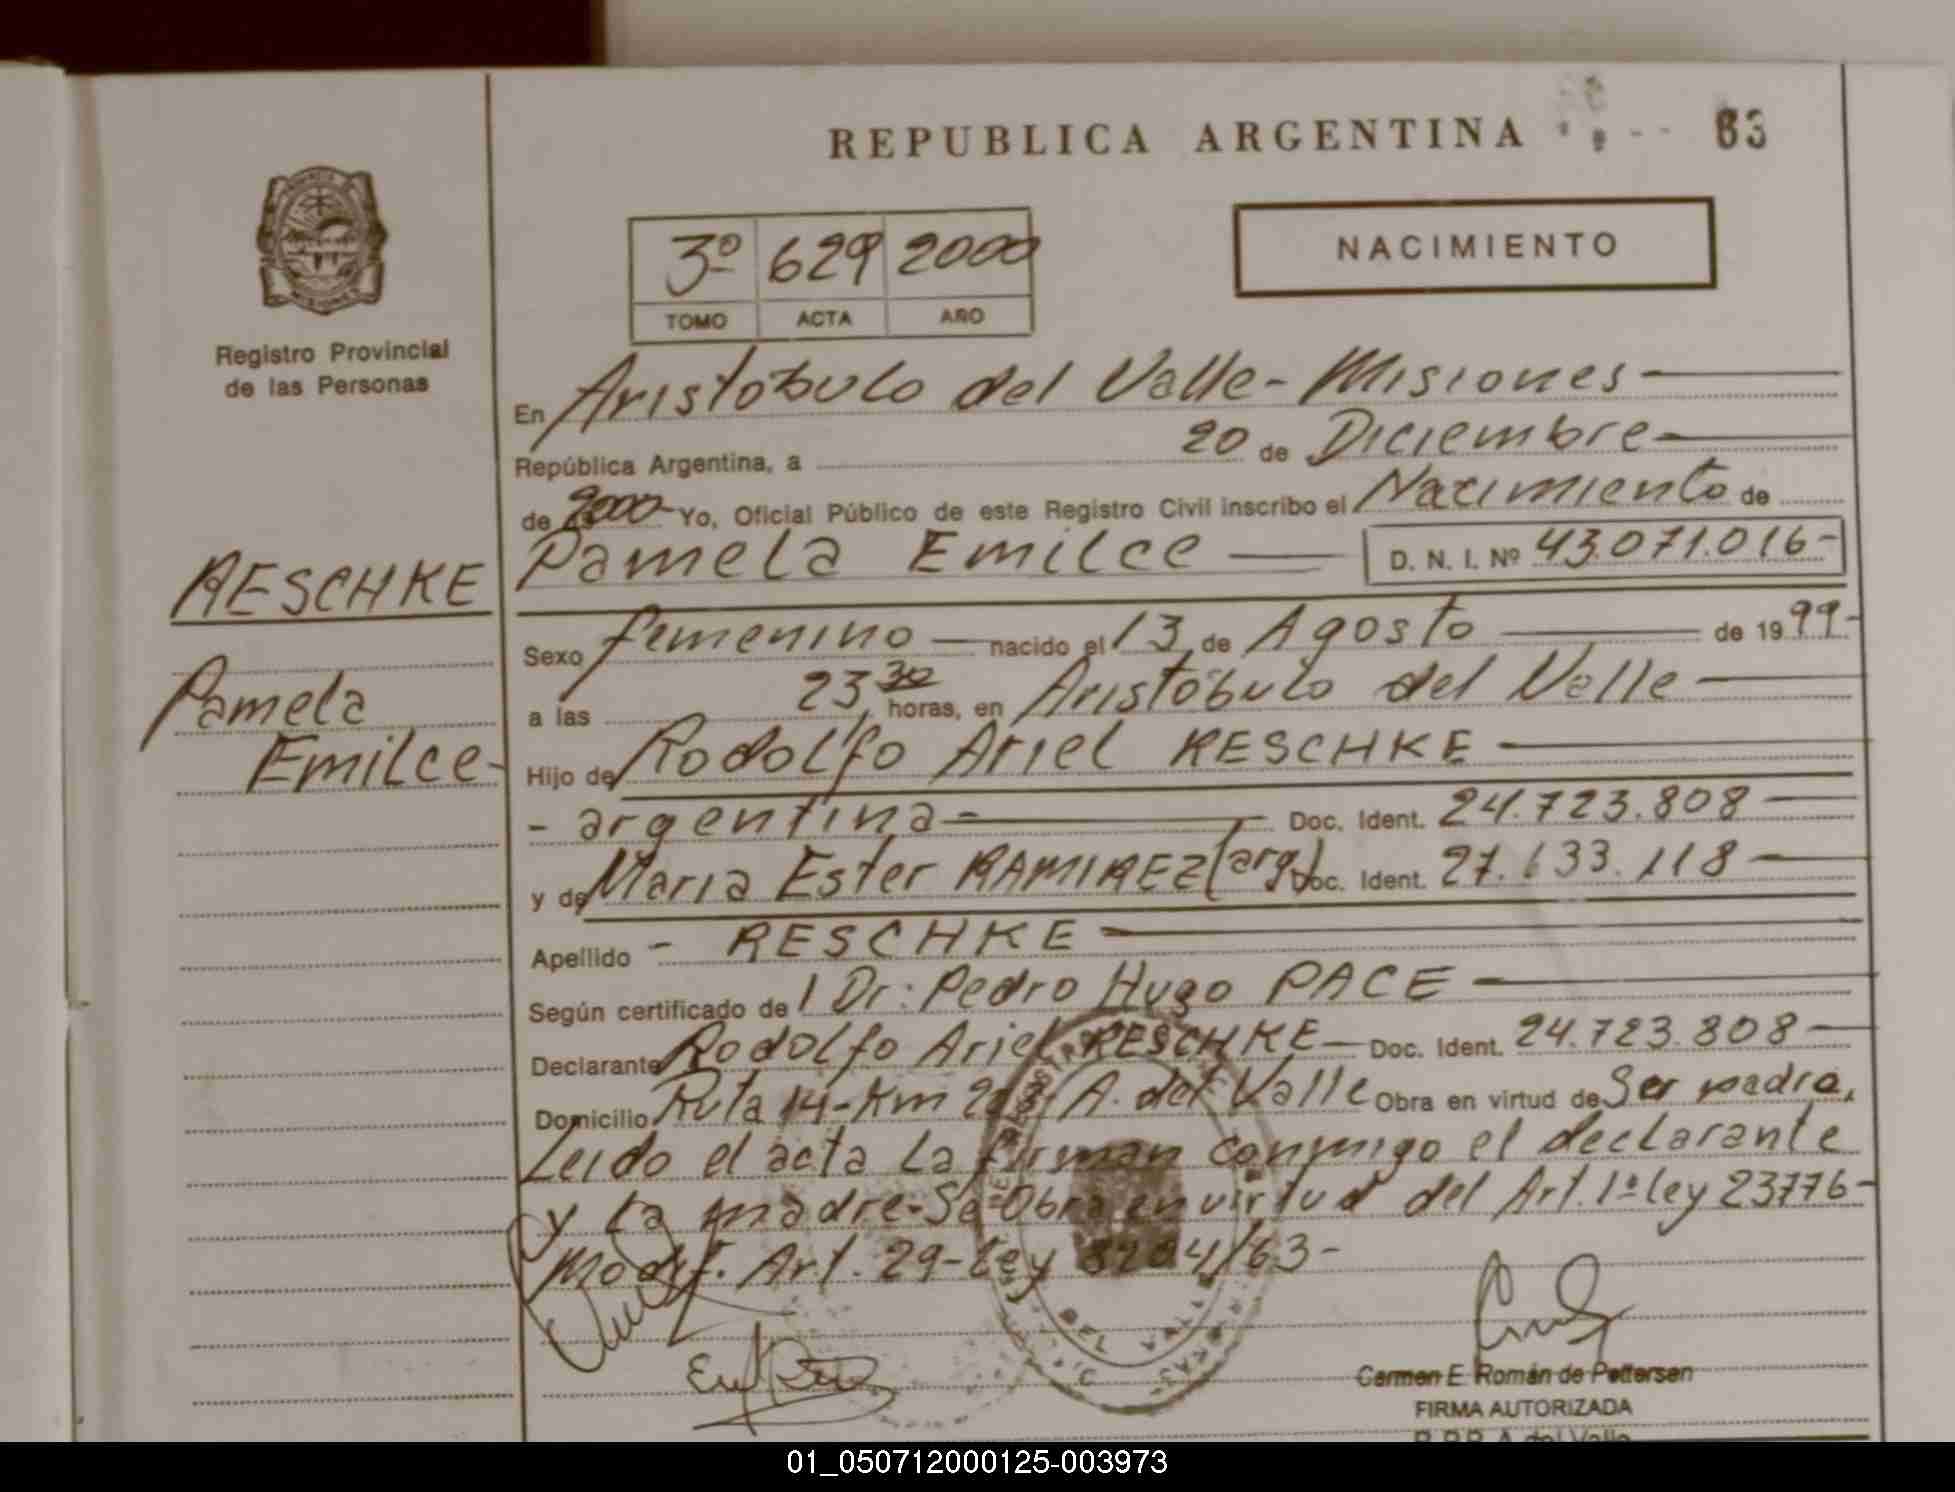 REPUBLICA ARGENTINA
63
3º 629 2000
TOMO ACTA AÑO
NACIMIENTO
Registro Provincial
de las Personas
En Aristóbulo del Valle - Misiones
República Argentina, a 20 de Diciembre
de 2000 Yo, Oficial Público de este Registro Civil inscribo el Nacimiento de
Pamela Emilce D. N. I. Nº 43.071.016-
RESCHKE
Pamela
Emilce-
Sexo femenino nacido el 13 de Agosto de 1999-
a las 23,30 horas, en Aristóbulo del Valle
Hijo de Rodolfo Ariel RESCHKE
- argentina - Doc. Ident. 24.723.808
y de Maria Ester RAMIREZ (arg) Doc. Ident. 27.633.118
Apellido - RESCHKE
Según certificado de Dr: Pedro Hugo PACE
Declarante Rodolfo Ariel RESCHKE - Doc. Ident. 24.723.808
Domicilio Ruta 14-Km A. del Valle Obra en virtud de Ser padre,
Leido el acta la firman conmigo el declarante
y la madre-Se Obra en virtud del Art. 1º ley 23776-
Modif. Art. 29-Ley 8204/63-
DEL VALLE
Carmen E. Román de Pettersen
FIRMA AUTORIZADA
R.P.P. A. del Valle
01_050712000125-003973